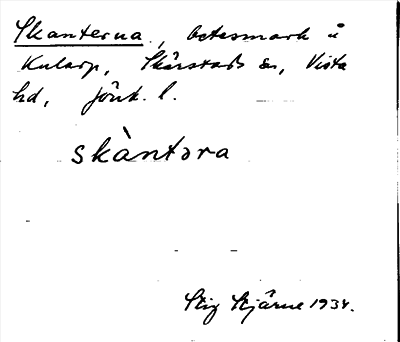 Skanterna, betesmark å
Kularp, Skärstads sn, Vista
hd, Jönk. l.
skàntəra
Stig Stjärne 1934.